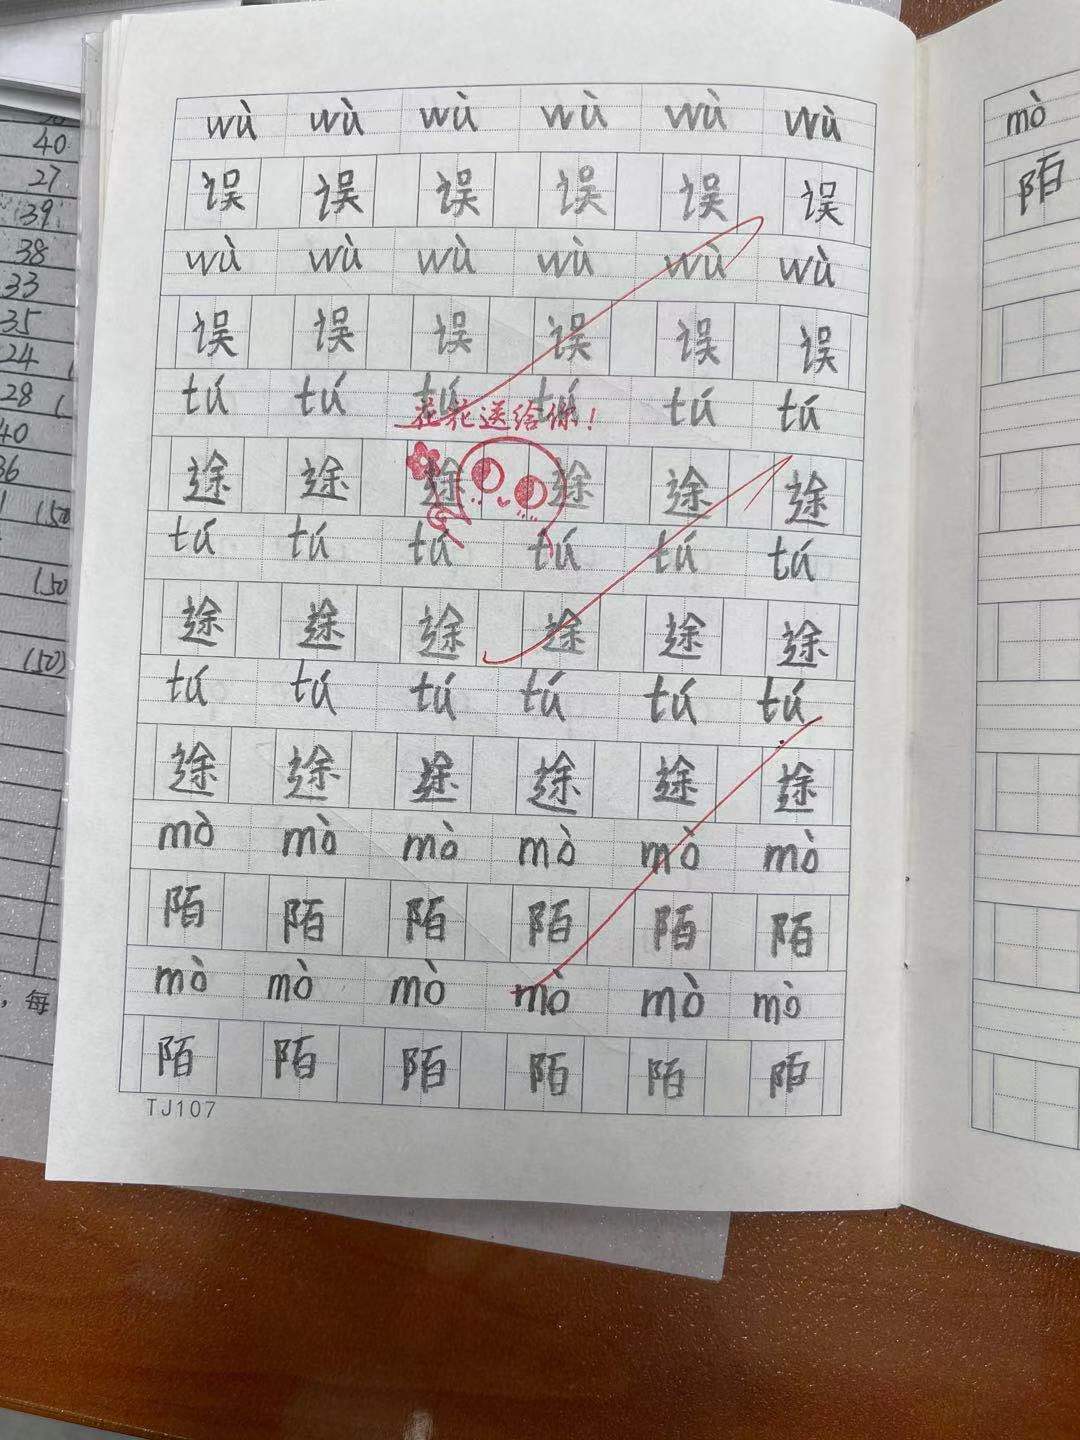 wù wù wù wù wù wù
误 误 误 误 误 误
wù wù wù wù wù wù
误 误 误 误 误 误
tú tú tú tú tú tú
花花送给你!
途 途 途 途 途 途
tú tú tú tú tú tú
途 途 途 途 途 途
tú tú tú tú tú tú
途 途 途 途 途 途
mò mò mò mò mò mò
陌 陌 陌 陌 陌 陌
mò mò mò mò mò mò
陌 陌 陌 陌 陌 陌
TJ107
mò
陌
40
27
39
38
33
35
24
28
40
36
(50
(50
(50)
,每